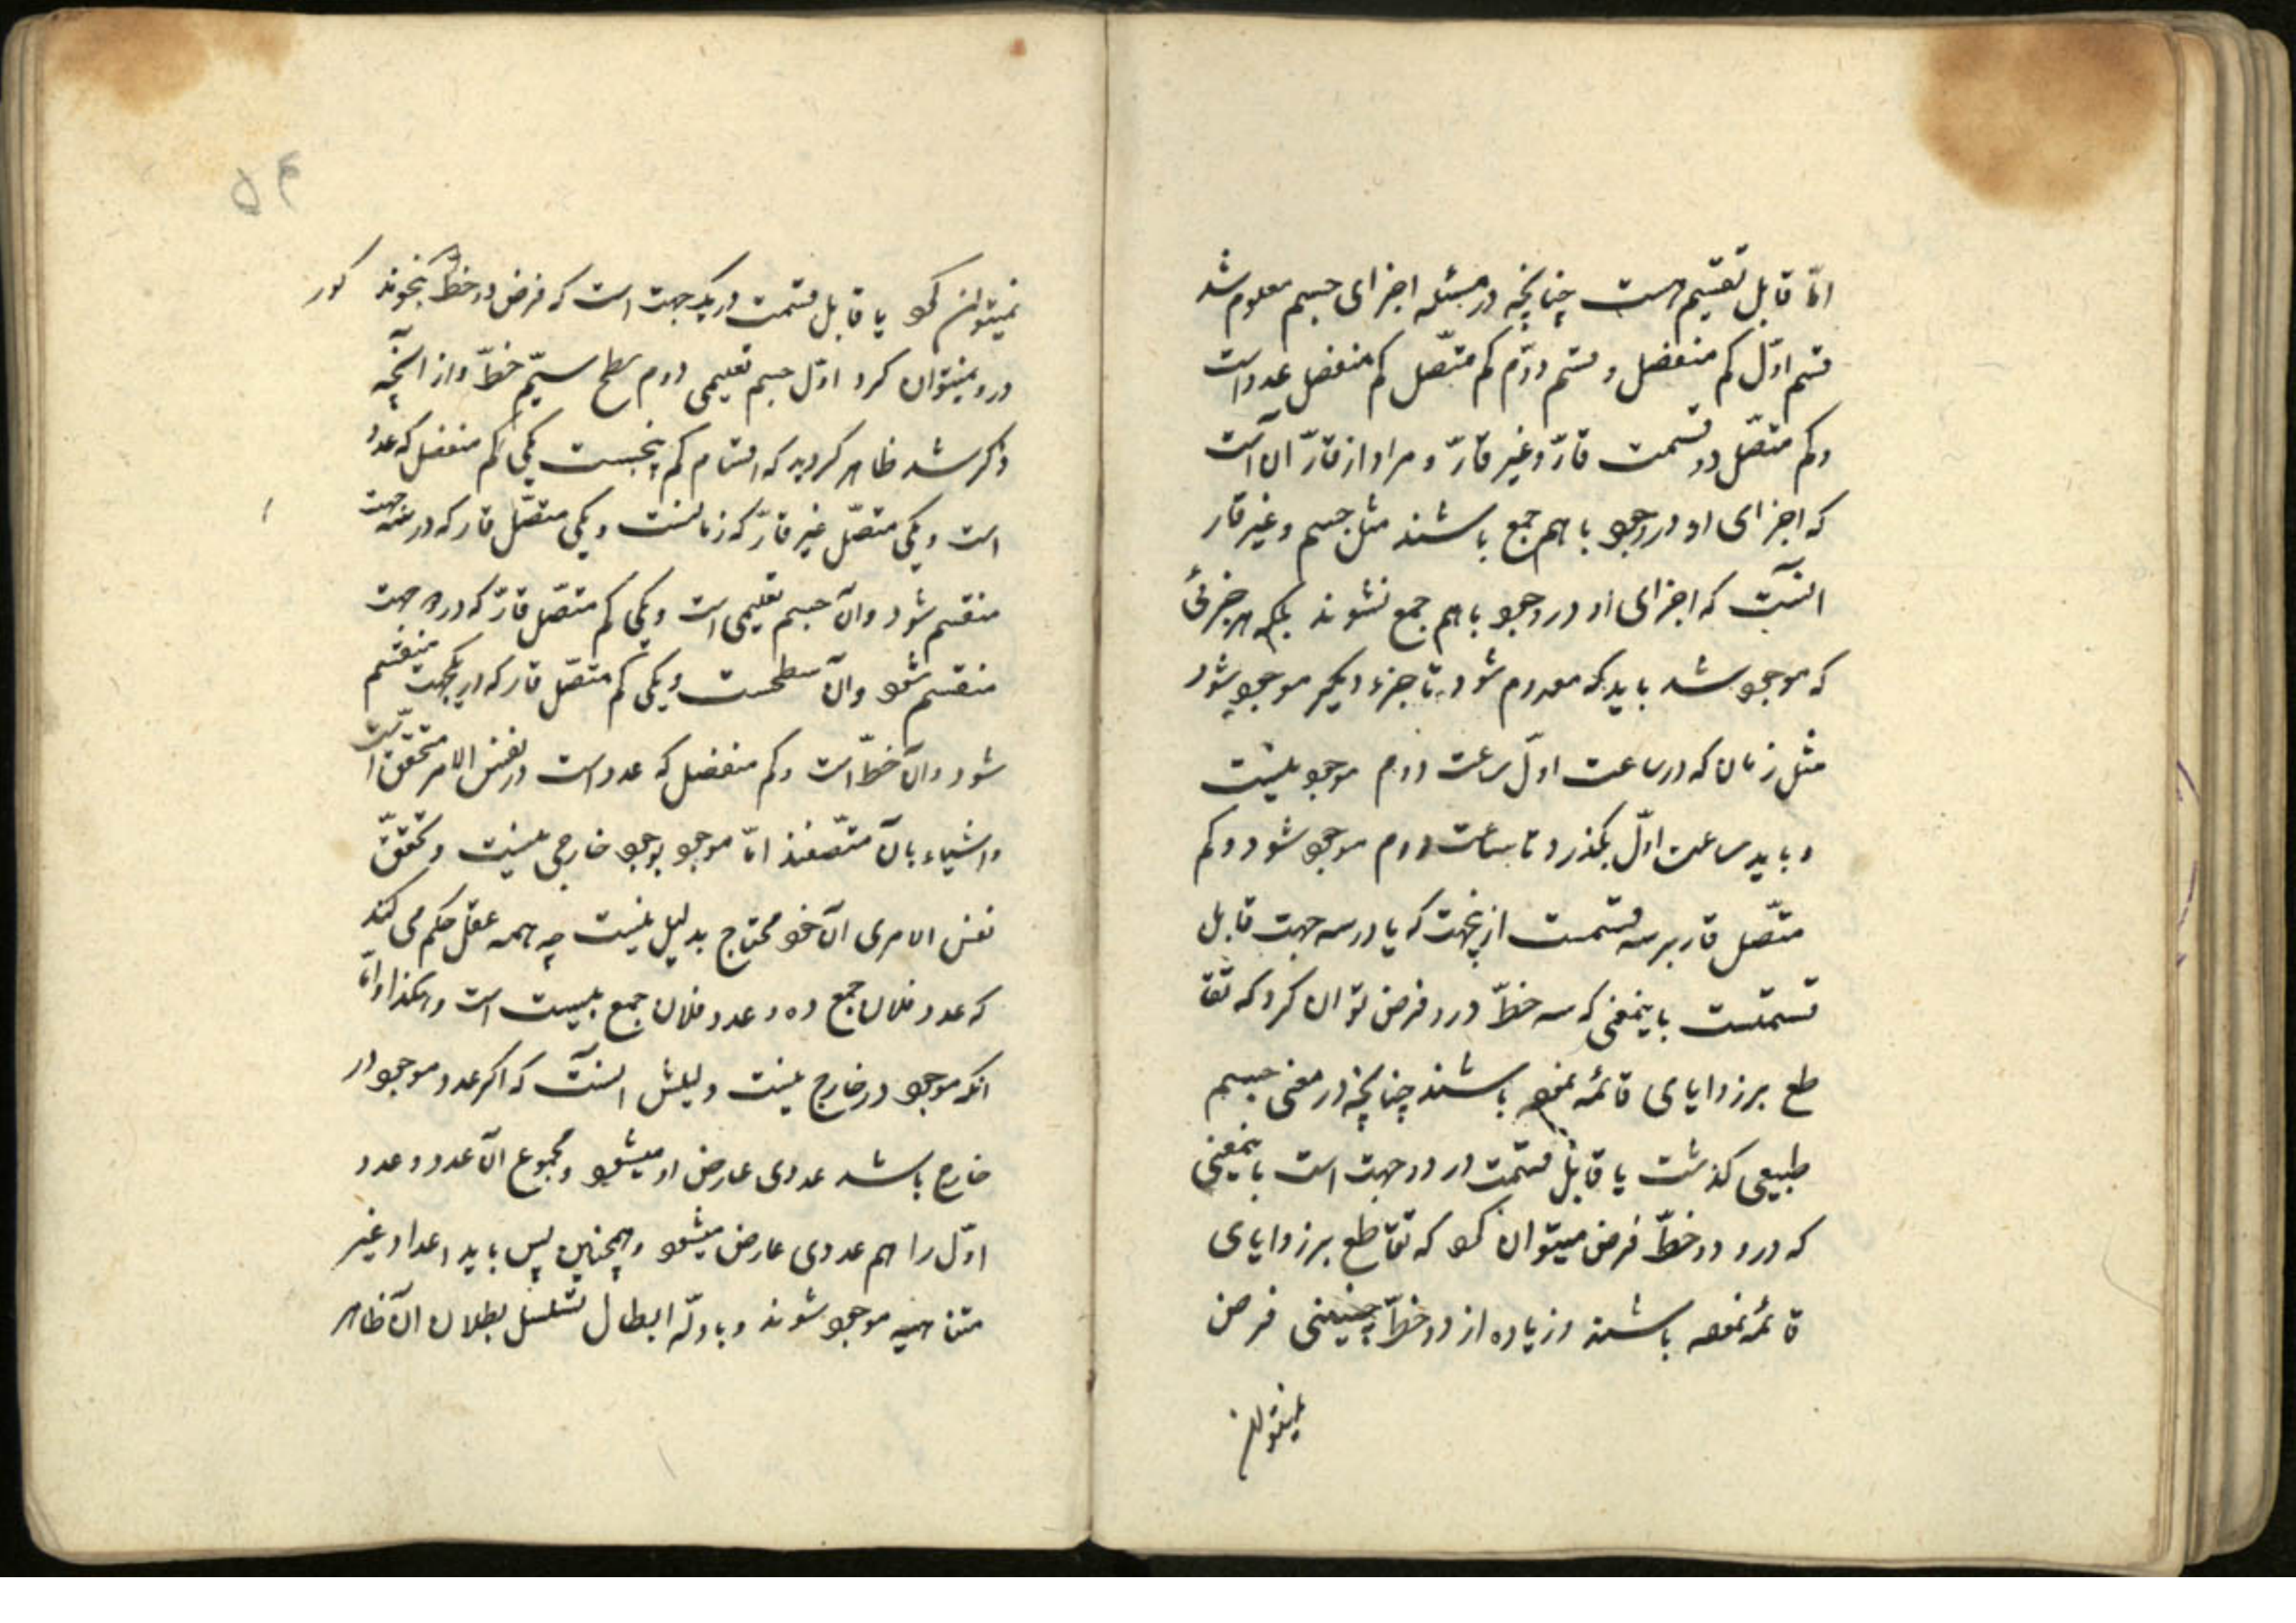 امّا قابل تقسیم هست چنانچه در مسئله اجزای جسم معلوم شد
قسم اوّل کم منفصل و قسم دوّم کم متّصل کم منفصل عدد است
و کم متصّل دو قسمت قارّ و غیر قارّ و مراد از قارّ آن است
که اجزای او در وجود با هم جمع باشند مثل جسم و غیر قار
آنست که اجزای او در وجود با هم جمع نشوند بلکه هر جزئی
که موجود شد باید که معدوم شود تا جزء دیگر موجود شود
مثل زمان که در ساعت اوّل ساعت دوم موجود نیست
و باید ساعت اوّل بگذرد تا ساعت دوم موجود شود و کم
متّصل قار بر سه قسمت ازینجهت که یا در سه جهت قابل
قسمتست باینمعنی که سه خطّ درو فرض توان کرد که تقا
طع بر زوایای قائمه نموده باشند چنانچه در معنی جسم
طبیعی گذشت یا قابل قسمت در دو جهت است باینمعنی
که درو دو خطّ فرض میتوان کرد که تقاطع بر زوایای
قائمه نموده باشند و زیاده از دو خطّ چنینی فرض
نمیتوان
۵۴
نمیتوان کرد یا قابل قسمت در یک جهت است که فرض دو خطّ بنحو مذ کور
درو نمیتوان کرد اوّل جسم تعلیمی دوم سطح سیّم خطّ و از آنچه
ذکر شد ظاهر کردید که اقسام کم پنجست یکی کم منفصل که عدد
است و یکی متصّل غیر قارّ که زمانست و یکی متصّل قار که در سه جهت
منقسم شود و آن جسم تعلیمی است و یکی کم متصّل قارّ که در دو جهت
منقسم شود و آن سطحست و یکی کم متصّل قار که در یکجهت منقسم
شود و آن خطّ است و کم منفصل که عدد است در نفس الامر متحقّق است
و اشیاء بآن متّصفند امّا موجود بوجود خارجی نیست و تحقّق
نفس الامری آن خود محتاج بدلیل نیست چه همه عقل حکم می کند
که عدد فلان جمع ده و عدد فلان جمع بیست است و هکذا و امّا
آنکه موجود در خارج نیست دلیلش آنست که اگر عدد موجود در
خارج باشد عددی عارض او میشود و مجموع آن عدد و عدد
اوّل را هم عددی عارض میشود و همچنین پس باید اعداد غیر
متناهیه موجود شوند و بادلّه ابطال تسلسل بطلان آن ظاهر